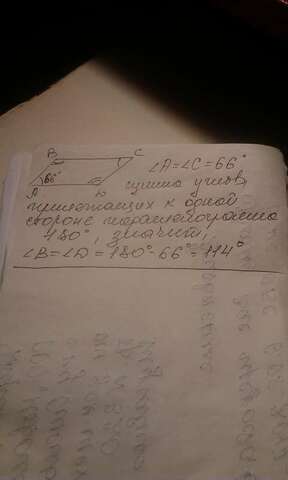 B C
66°
A D
∠A=∠C=66°
сумма углов,
прилежащих к одной
стороне параллелограмма
180°, значит,
∠B=∠D=180°-66°=114°